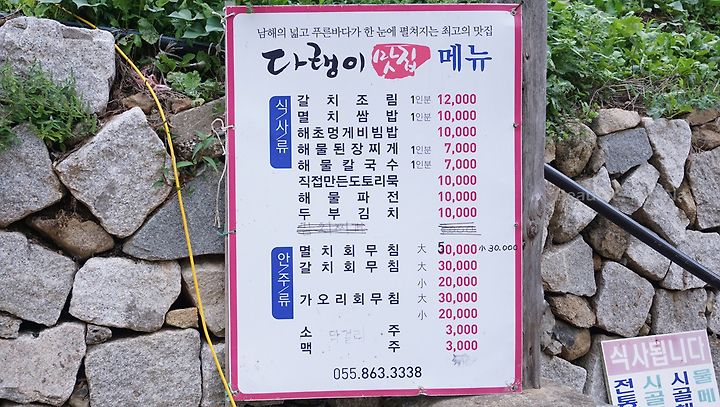 남해의 넓고 푸른바다가 한 눈에 펼쳐지는 최고의 맛집
다랭이 맛집 메뉴
식/사/류
갈치조림 1인분 12,000
멸치쌈밥 1인분 10,000
해초멍게비빔밥 10,000
해물된장찌개 1인분 7,000
해물칼국수 1인분 7,000
직접만든도토리묵 10,000
해물파전 10,000
두부김치 10,000
안/주/류
멸치회무침 大 50,000 小 30.000
갈치회무침 大 30,000
小 20,000
가오리회무침 大 30,000
小 20,000
소주 3,000
막걸리
맥주 3,000
055.863.3338
식사됩니다